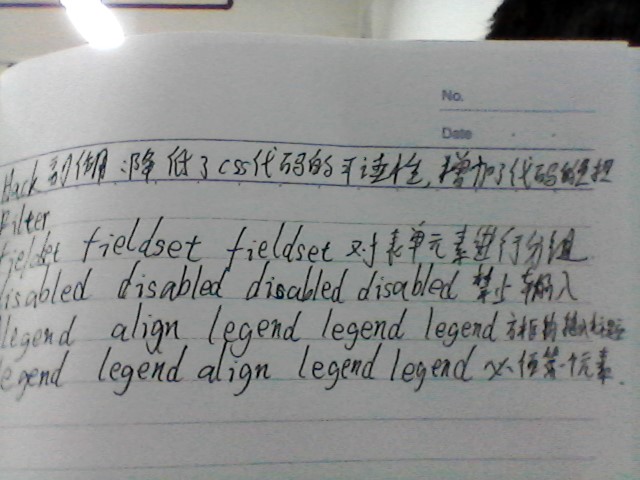 No.
Date
Hack 副作用:降低了css代码的可读性,增加了代码的负担
Filter
fieldset fieldset fieldset 对表单元素进行分组
disabled disabled disabled disabled 禁止输入
legend align legend legend legend 方框的
legend legend align legend legend 必须第一个元素.